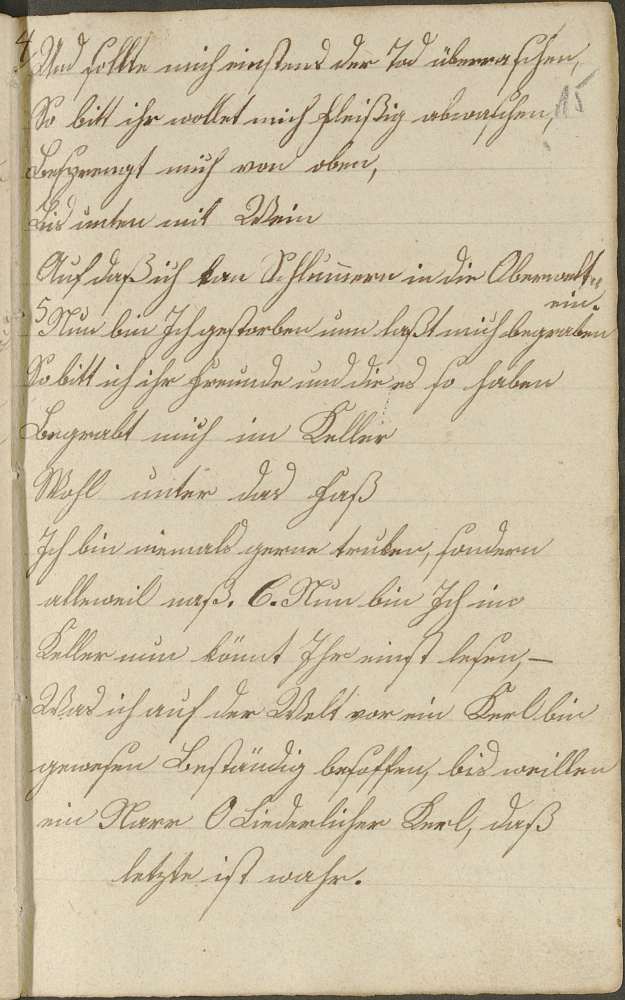 4 Und sollte mich einstens der Tod überraschen,
15
So bitt ihr wollet mich fleißig abwaschen,
Besprengt mich von oben,
bis unten mit Wein
Auf daß ich kan Schlummern in die Oberwelt
ein.
5 Nun bin Ich gestorben nun laßt mich begraben
So bitt ich ihr Freunde und die es so haben
Begrabt mich im Keller
Wohl unter das Faß
Ich bin niemals gerne truken, sondern
alleweil naß. 6. Nun bin Ich im
Keller nun könnt Ihr einst lesen, —
Was ich auf der Welt vor ein Kerl bin
gewesen Beständig besoffen, bis weillen
ein Narr O Liederlicher Kerl, daß
letzte ist wahr.